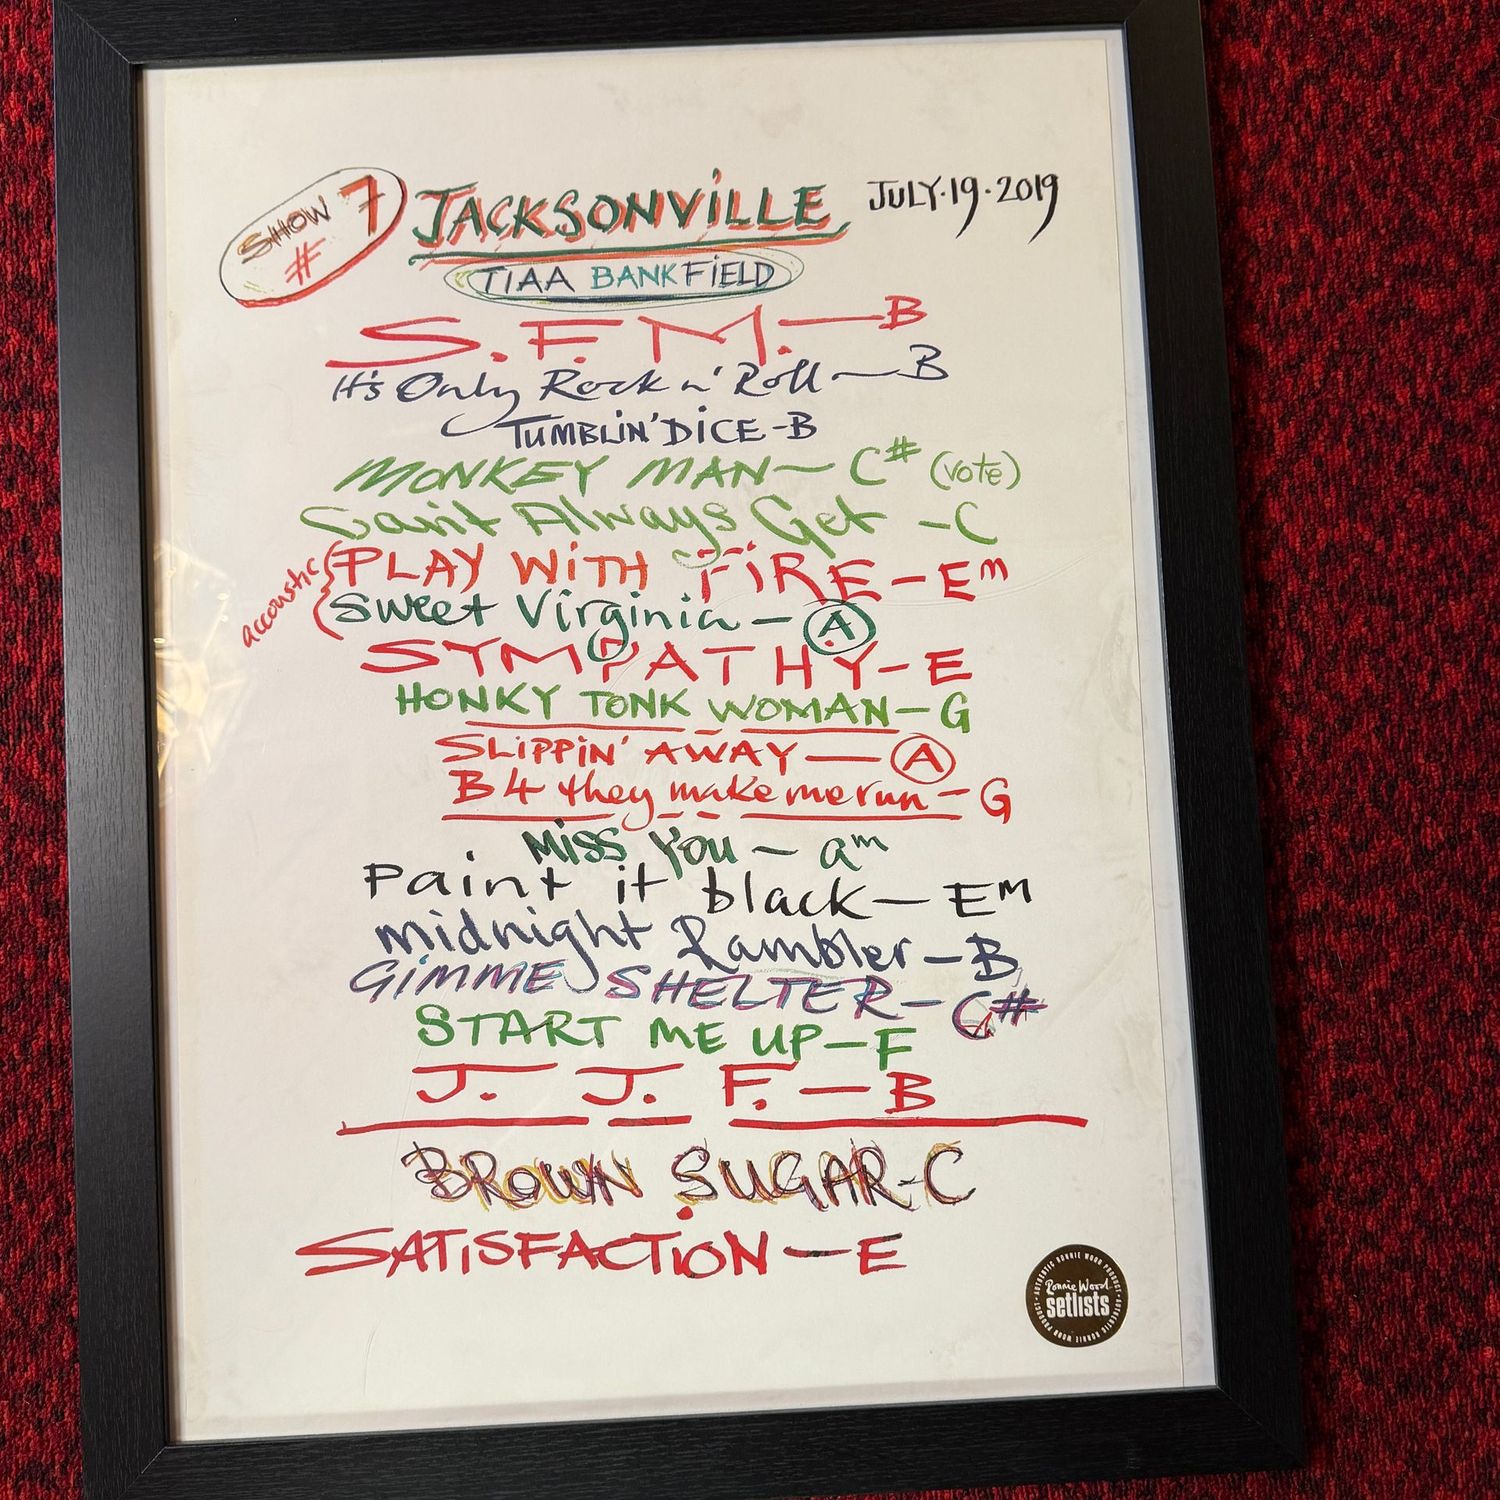 SHOW # 7
JACKSONVILLE
JULY·19·2019
TIAA BANK FIELD
S.F.M. — B
It's Only Rock n' Roll — B
TUMBLIN' DICE - B
MONKEY MAN — C# (vote)
Can't Always Get - C
accoustic
PLAY WITH FIRE - Em
Sweet Virginia - A
SYMPATHY - E
HONKY TONK WOMAN - G
SLIPPIN' AWAY — A
B4 they make me run - G
MISS YOU — am
Paint it black — Em
midnight Rambler - B
GIMME SHELTER - C#
START ME UP - F
J. J. F. — B
BROWN SUGAR - C
SATISFACTION — E
AUTHENTIC RONNIE WOOD PRODUCT · AUTHENTIC RONNIE WOOD PRODUCT ·
Ronnie Wood
setlists